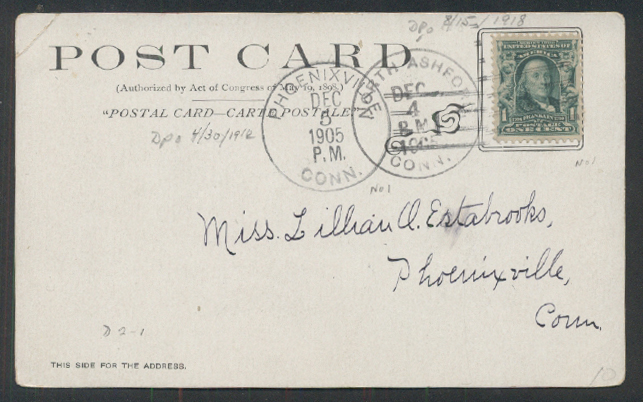 DPO 8/15/1918
POST CARD
(Authorized by Act of Congress of May 19, 1898.)
"POSTAL CARD—CARTE POSTALE"
DPO 4/30/1912
PHOENIXVILLE
DEC
5
1905
P.M.
CONN.
NORTH ASHFO
DEC
4
P M
1905
CONN.
SERIES 1902
UNITED STATES OF
AMERICA
1
1
FRANKLIN
POSTAGE
ONE CENT
No1
No1
Miss. Lillian A. Estabrooks,
Phoenixville,
Conn.
D 2-1
THIS SIDE FOR THE ADDRESS.
10